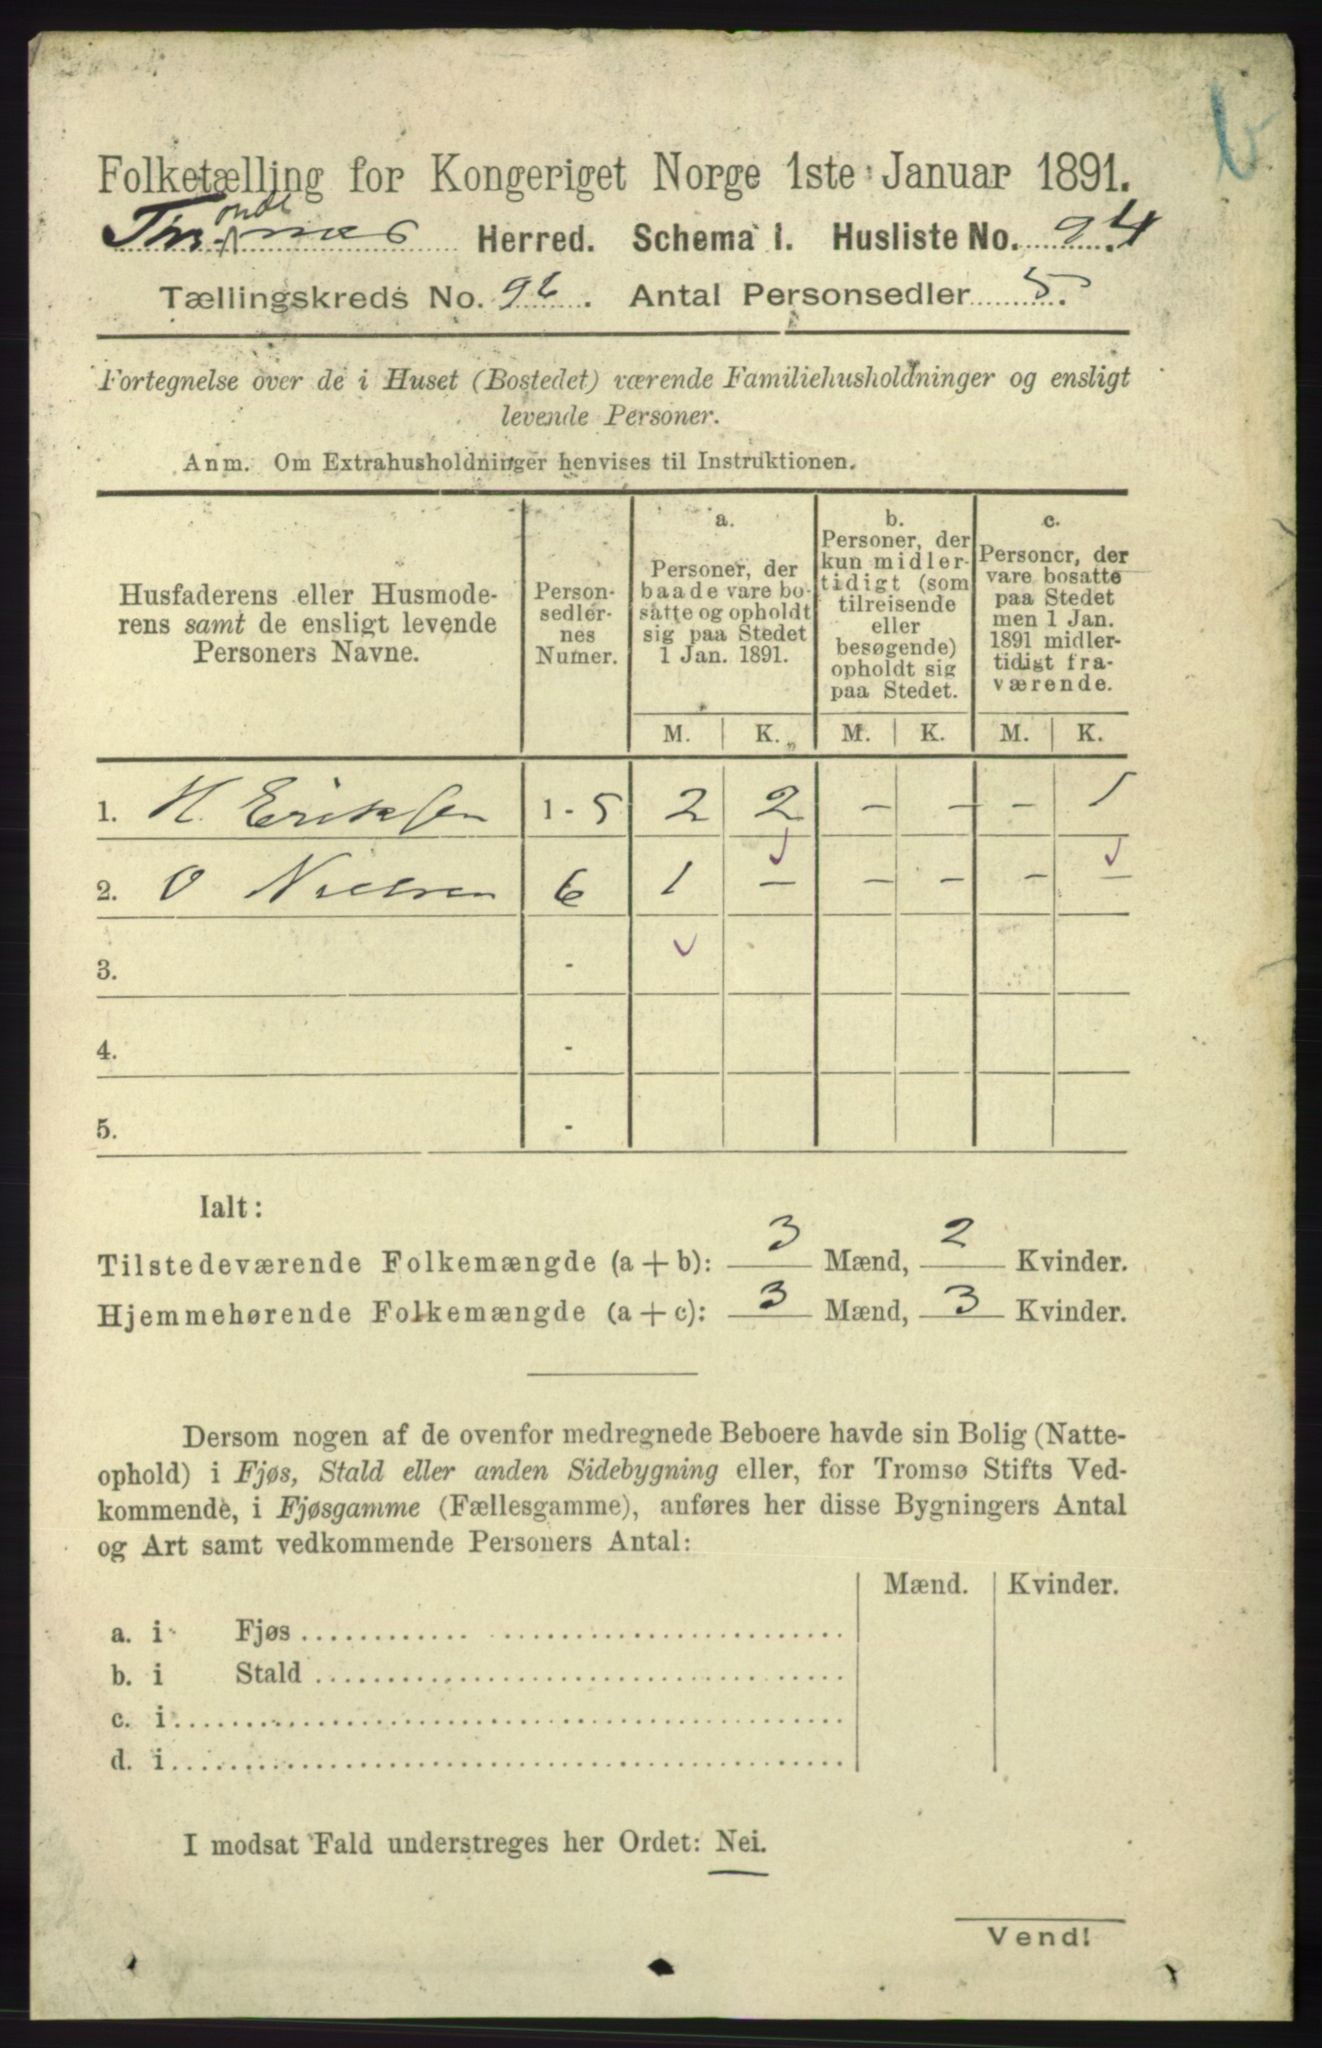 b
Folketælling for Kongeriget Norge 1ste Januar 1891.
Trondenæs Herred. Schema I. Husliste No. 94
Tællingskreds No. 9b. Antal Personsedler 5.
Fortegnelse over de i Huset (Bostedet) værende Familiehusholdninger og ensligt
levende Personer.
Anm. Om Extrahusholdninger henvises til Instruktionen.
Husfaderens eller Husmode-
rens samt de ensligt levende
Personers Navne.
Person-
sedler-
nes
Numer.
a.
Personer, der
baade vare bo-
satte og opholdt
sig paa Stedet
1 Jan. 1891.
b.
Personer, der
kun midler-
tidigt (som
tilreisende
eller
besøgende)
opholdt sig
paa Stedet.
c.
Personer, der
vare bosatte
paa Stedet
men 1 Jan.
1891 midler-
tidigt fra-
værende.
M. K. M. K. M. K.
1. H. Eriksen 1 - 5 2 2 – – – 1
2. O Nielsen 6 1 – – – – –
3. -
4. -
5. -
Ialt:
Tilstedeværende Folkemængde (a + b): 3 Mænd, 2 Kvinder.
Hjemmehørende Folkemængde (a + c): 3 Mænd, 3 Kvinder.
Dersom nogen af de ovenfor medregnede Beboere havde sin Bolig (Natte-
ophold) i Fjøs, Stald eller anden Sidebygning eller, for Tromsø Stifts Ved-
kommende, i Fjøsgamme (Fællesgamme), anføres her disse Bygningers Antal
og Art samt vedkommende Personers Antal:
Mænd. Kvinder.
a. i Fjøs
b. i Stald
c. i
d. i
I modsat Fald understreges her Ordet: Nei.
Vend!